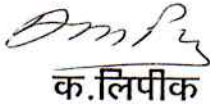 क.लिपीक